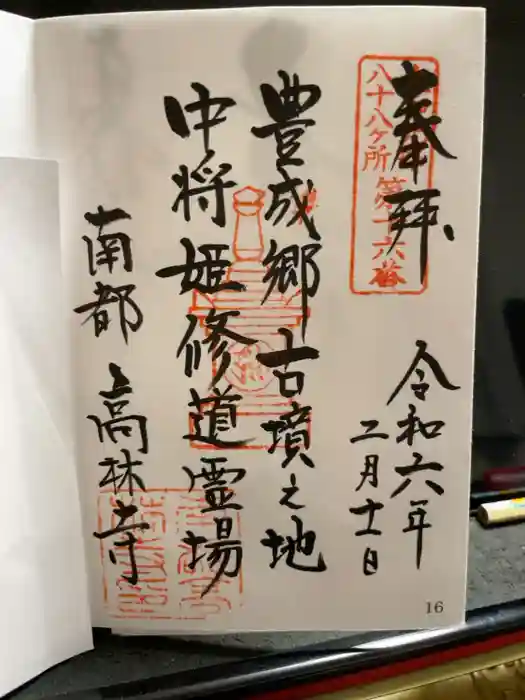 奉拝
八十八ヶ所第十六番
令和六年
二月十一日
豊成郷古墳之地
中将姫修道霊場
南都 高林寺
16